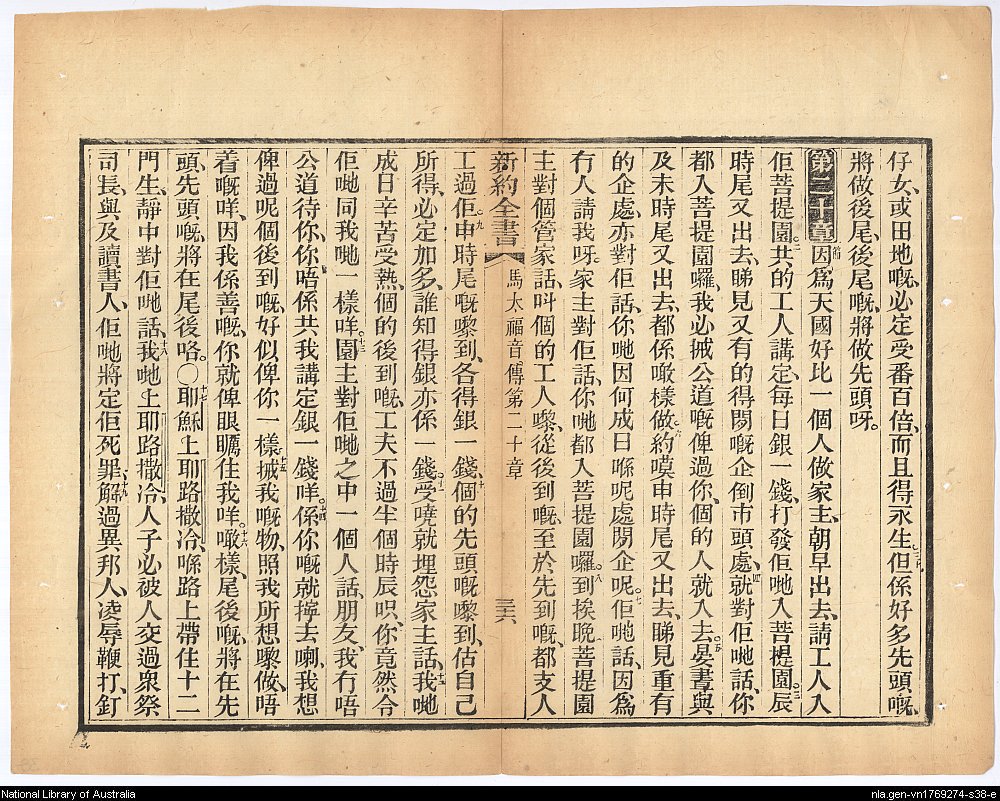 仔女、或田地嘅、必定受番百倍、而且得永生、三十但係好多先頭嘅、
將做後尾、後尾嘅、將做先頭呀。
第二十章 一節 因爲天國好比一個人做家主、朝早出去、請工人入
佢菩提園。二共的工人講定、每日銀一錢、打發佢哋入菩提園。三辰
時尾又出去、睇見又有的得閒嘅企倒市頭處、四就對佢哋話、你
都入菩提園囉、我必搣公道嘅俾過你、個的人就入去。五晏晝與
及未時尾又出去、都係噉樣做、六約嘆申時尾又出去、睇見重有
的企處、亦對佢話、你哋因何成日喺呢處閒企呢。七佢哋話、因爲
有人請我呀、家主對佢話、你哋都入菩提園囉。八到挨晚、菩提園
主對個管家話、叫個的工人嚟、從後到嘅、至於先到嘅、都支人
新約全書 馬太福音傳第二十章 三六
工過佢。九申時尾嘅嚟到、各得銀一錢、十個的先頭嘅嚟到、估自己
所得、必定加多、誰知得銀亦係一錢。十一受嘵就埋怨家主話、十二我哋
成日辛苦受熱、個的後到嘅、工夫不過半個時辰呮、你竟然令
佢哋同我哋一樣咩。十三園主對佢哋之中一個人話、朋友、我有唔
公道待你、你唔係共我講定銀一錢咩。十四係你嘅就擰去喇、我想
俾過呢個後到嘅、好似俾你一樣、十五搣我嘅物、照我所想嚟做、唔
着嘅咩、因我係善嘅、你就俾眼矋住我咩。十六噉樣、尾後嘅、將在先
頭、先頭嘅將在尾後咯。〇十七耶穌上耶路撒冷、喺路上帶住十二
門生、靜中對佢哋話、十八我哋上耶路撒冷、人子必被人交過衆祭
司長、與及讀書人、佢哋將定佢死罪、十九解過異邦人、凌辱鞭打、釘
National Library of Australia
nla.gen-vn1769274-s38-e